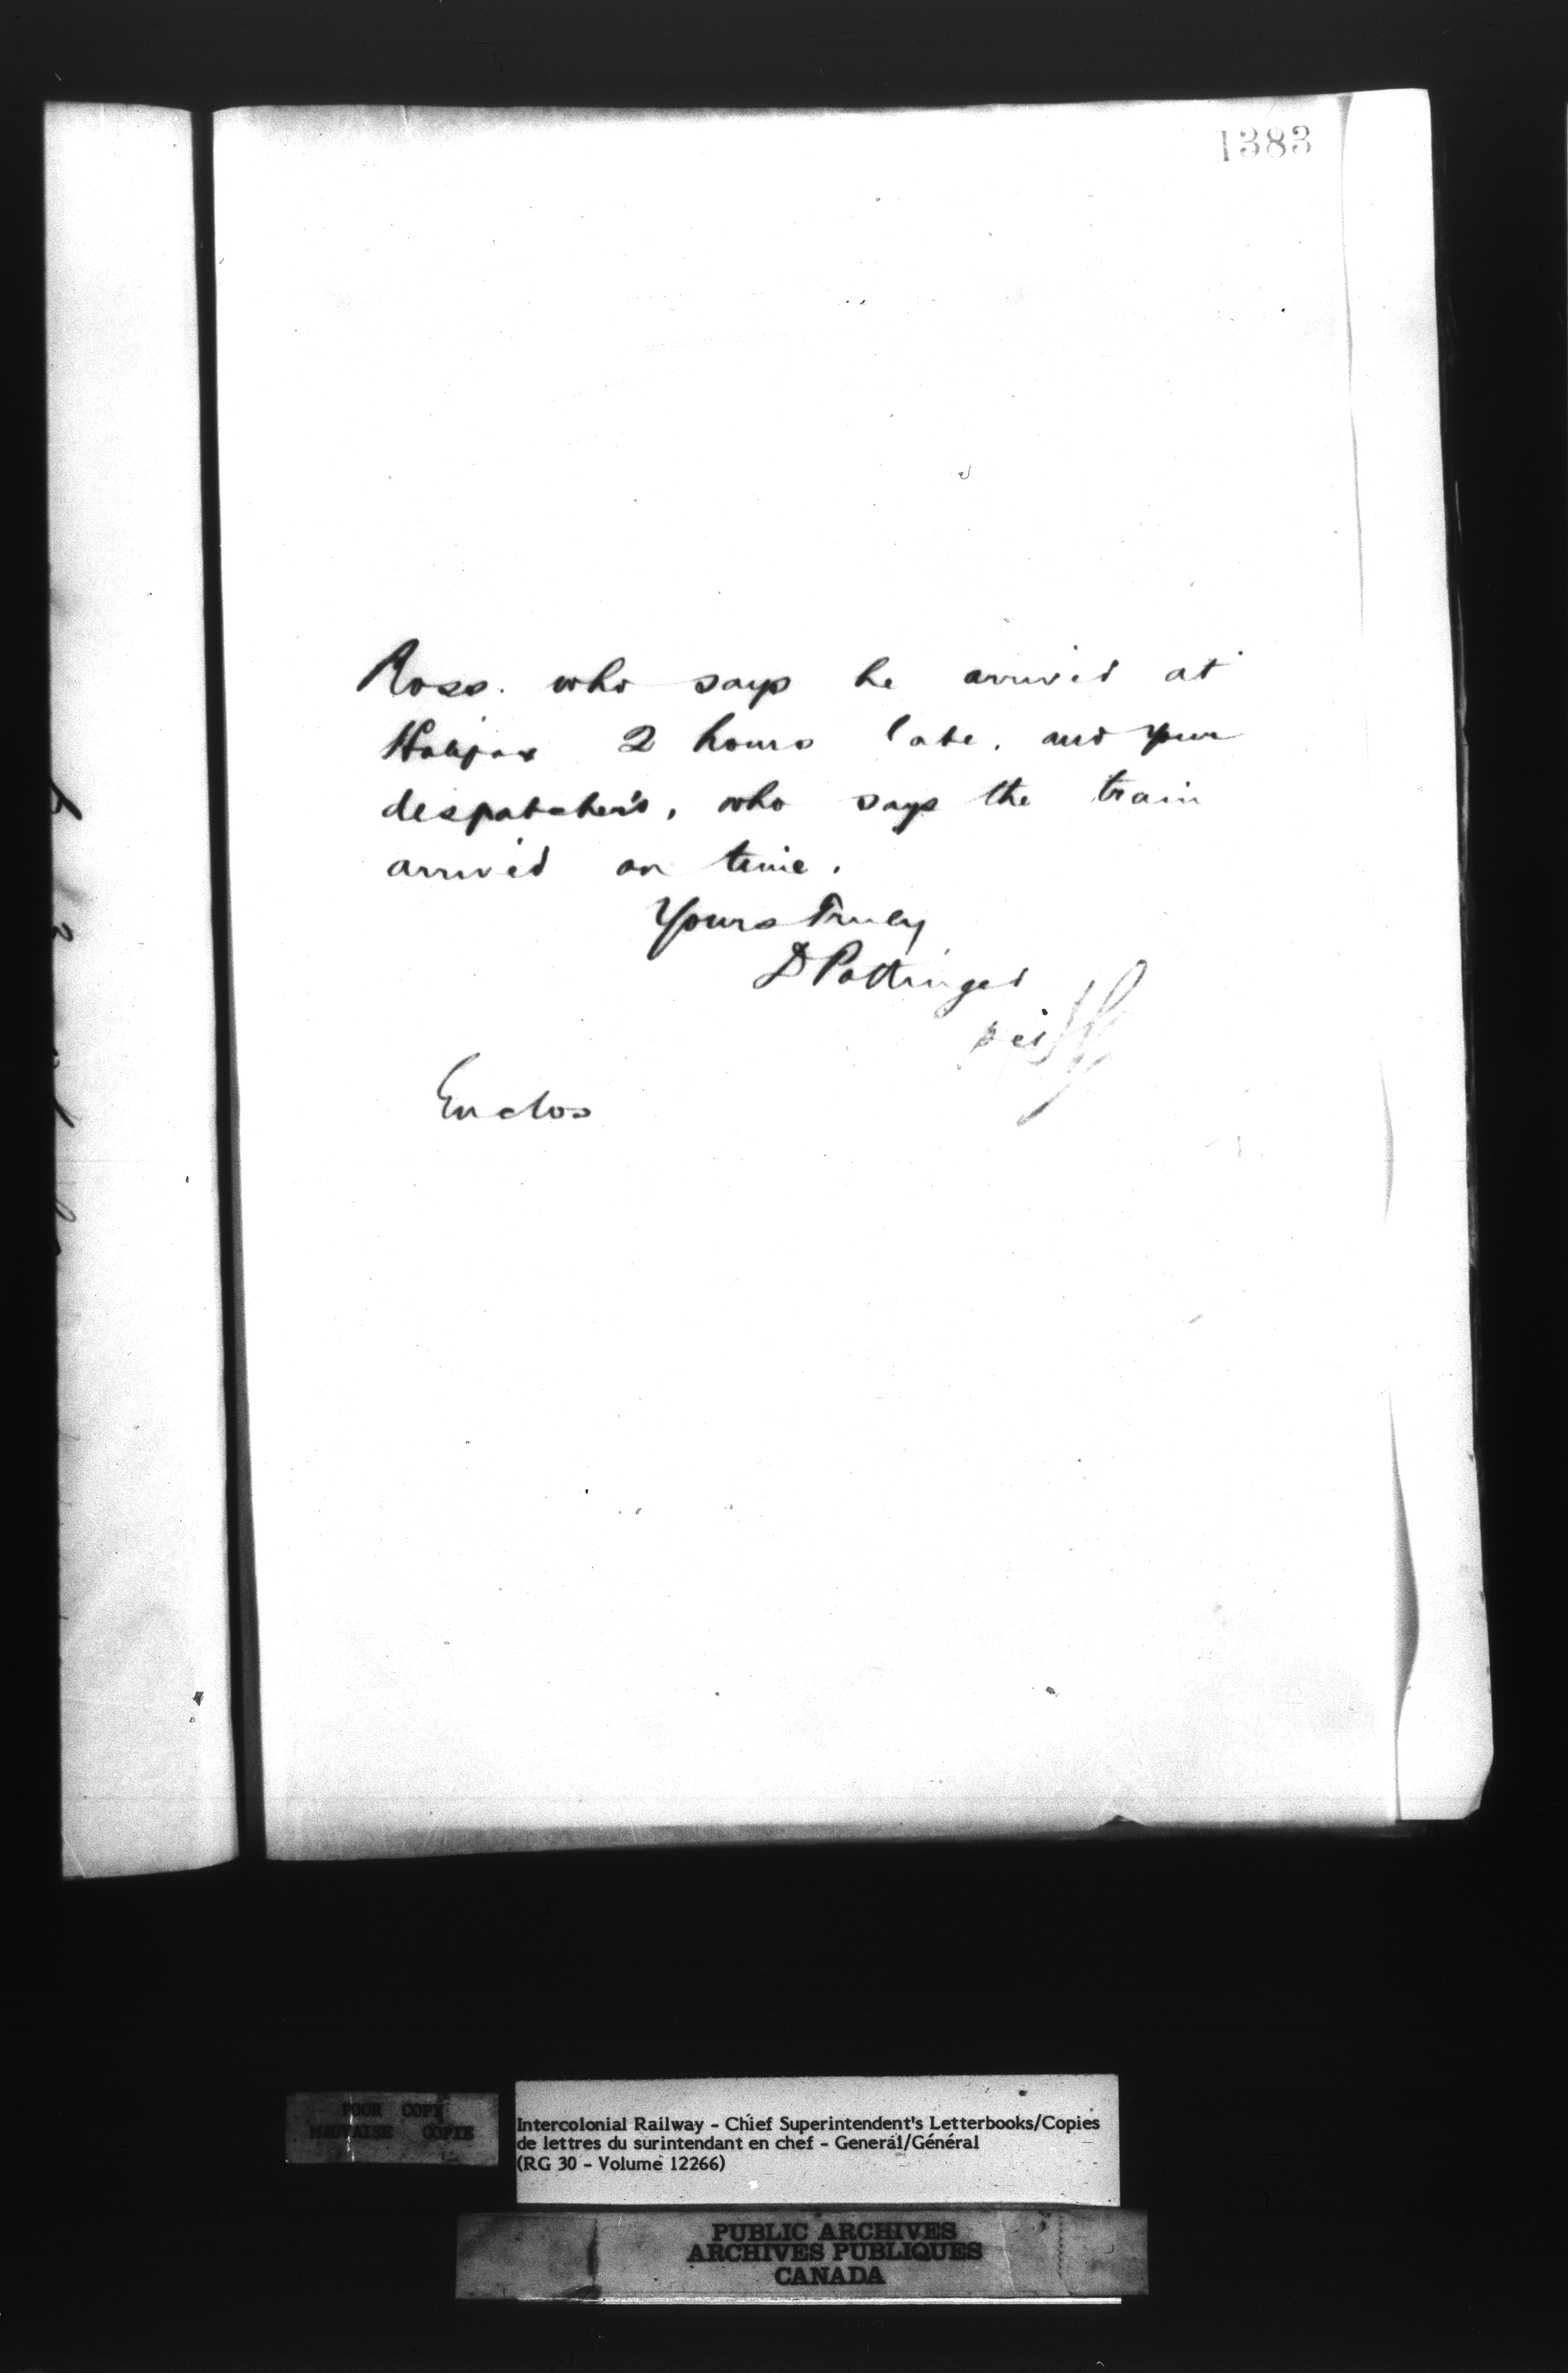 1383
Ross. who says he arrived at
Halifax 2 hours late, and your
despatcher's, who says the train
arrived on time.
Yours Truly
D Pottinger
per
Enclos
POOR COPY
MAUVAISE COPIE
Intercolonial Railway - Chief Superintendent's Letterbooks/Copies
de lettres du surintendant en chef - General/Général
(RG 30 - Volume 12266)
PUBLIC ARCHIVES
ARCHIVES PUBLIQUES
CANADA